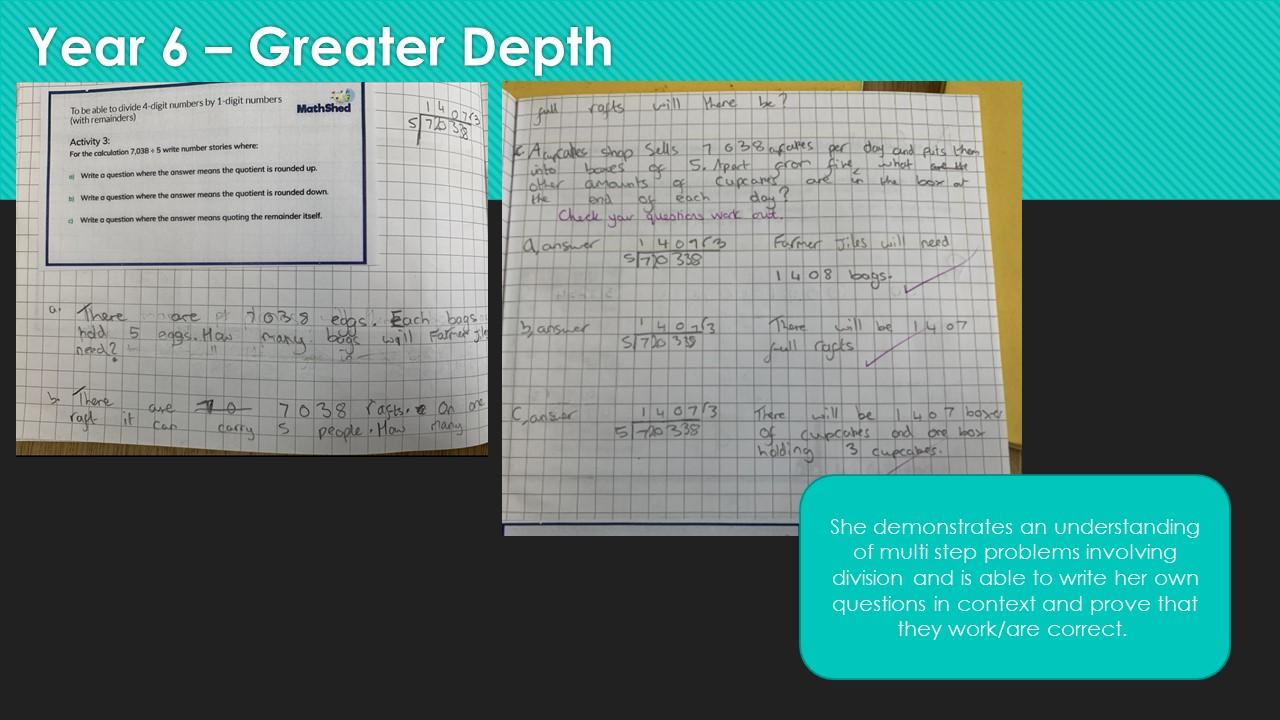 Year 6 – Greater Depth
To be able to divide 4-digit numbers by 1-digit numbers
(with remainders)
MathShed
Activity 3:
For the calculation 7,038 ÷ 5 write number stories where:
a) Write a question where the answer means the quotient is rounded up.
b) Write a question where the answer means the quotient is rounded down.
c) Write a question where the answer means quoting the remainder itself.
1 4 0 7 r3
5 7 20 3 38
a. There are 7038 eggs. Each bags
hold 5 eggs. How many bags will Farmer Jiles
need?
b. There are 7038 rafts. On one
raft it can carry 5 people. How many
full rafts will there be?
c A cupcakes shop sells 7038 cupcakes per day and puts them
into boxes of 5. Apart from five, what
other amounts of cupcakes are in the box at
the end of each day?
Check your questions work out.
a, answer 1 4 0 7 r 3 Farmer Jiles will need
5 7 20 3 38
1408 bags.
b, answer 1 4 0 7 r3 There will be 1407
5 7 20 3 38 full rafts
C, answer 1 4 0 7 r3 There will be 1407 boxes
5 7 20 3 38 of cupcakes and one box
holding 3 cupcakes.
She demonstrates an understanding
of multi step problems involving
division and is able to write her own
questions in context and prove that
they work/are correct.